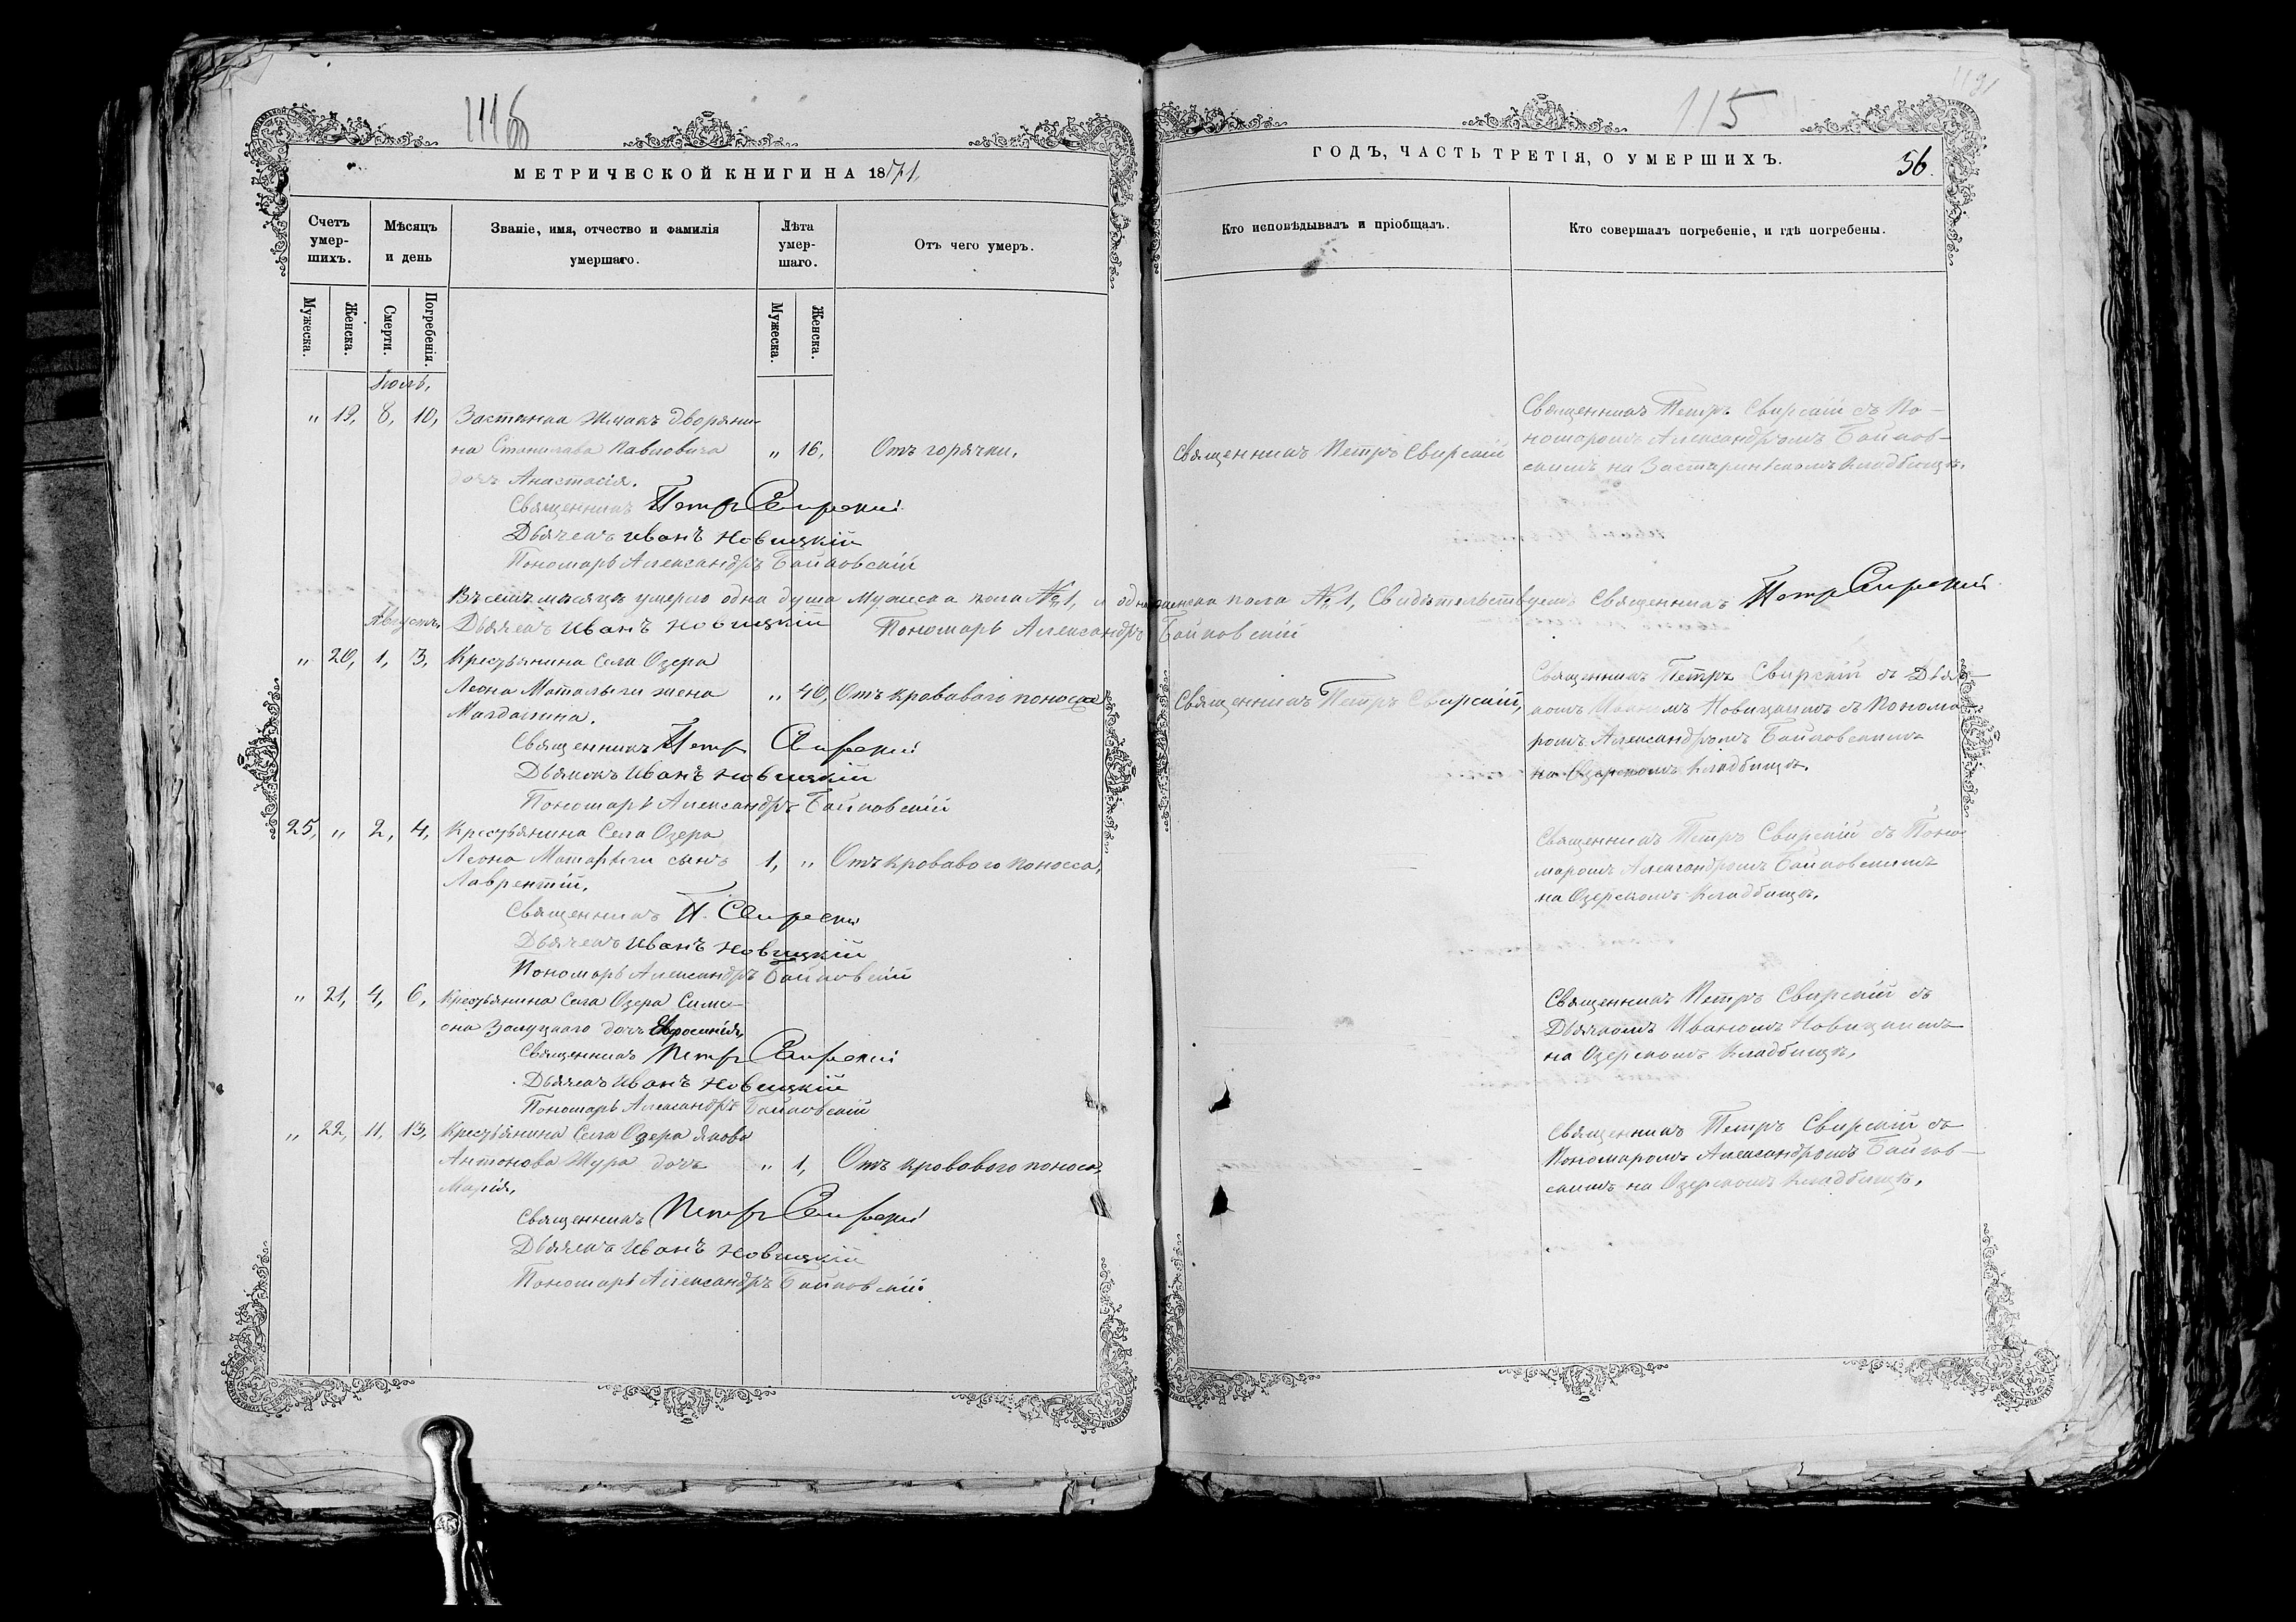 1116
МЕТРИЧЕСКОЙ КНИГИ НА 1871,
Счетъ умер-шихъ.
Мѣсяцъ и день
Званіе, имя, отчество и фамилія умершаго.
Лѣта умер-шаго.
Отъ чего умеръ.
Мужеска.
Женска.
Смерти.
Погребенія.
Мужеска.
Женска.
Іюль,
" 19, 8, 10, Застѣнка Жмакъ дворяни-
на Станислава Павловича " 16, Отъ горячки,
дочь Анастасія.
Священникъ Петръ Свирскій
Дьячекъ Иванъ Новицкій
Пономарь Александръ
Въ семъ мѣсяцѣ умерло одна душа мужеска пола № 1, и одна женска пола № 1, Свидѣтельствуемъ Священникъ Петръ Свирскій
Августъ, Дьячекъ Иванъ Новицкій Пономарь Александръ
" 20, 1, 3, Крестьянина Села Озера
Леона жена " 40, Отъ кроваваго поносса
Магдалина.
Священникъ Петръ Свирскій
Дьячекъ Иванъ Новицкій
Пономарь Александръ
25, " 2, 4, Крестьянина Села Озера
Леона сынъ 1, " Отъ кроваваго поносса,
Лаврентій,
Священникъ П. Свирскій
Дьячекъ Иванъ Новицкій
Пономарь Александръ
" 21, 4, 6, Крестьянина Села Озера Симе-
она Залуцкаго дочь Евфросинія,
Священникъ Петръ Свирскій
Дьячекъ Иванъ Новицкій
Пономарь Александръ
" 22, 11, 13, Крестьянина Села Озера Якова
Антонова Жура дочь " 1, Отъ кроваваго поноса,
Марія,
Священникъ Петръ Свирскій
Дьячекъ Иванъ Новицкій
Пономарь Александръ
115
ГОДЪ, ЧАСТЬ ТРЕТІЯ, О УМЕРШИХЪ.
56.
Кто исповѣдывалъ и пріобщалъ.
Кто совершалъ погребеніе, и гдѣ погребены.
Священникъ Петръ Свирскій съ По-
номаромъ Александромъ
Священникъ Петръ Свирскій
скимъ на Кладбищѣ.
Священникъ Петръ Свирскій съ Дьяч-
Священникъ Петръ Свирскій,
комъ Иваномъ Новицкимъ съ Понома
ромъ Александромъ
на Озерскомъ Кладбищѣ.
Священникъ Петръ Свирскій съ Поно
маромъ Александромъ
на Озерскомъ Кладбищѣ.
Священникъ Петръ Свирскій съ
Дьячкомъ Иваномъ Новицкимъ
на Озерскомъ Кладбищѣ,
Священникъ Петръ Свирскій съ
Пономаромъ Александромъ
скимъ на Озерскомъ Кладбищѣ,